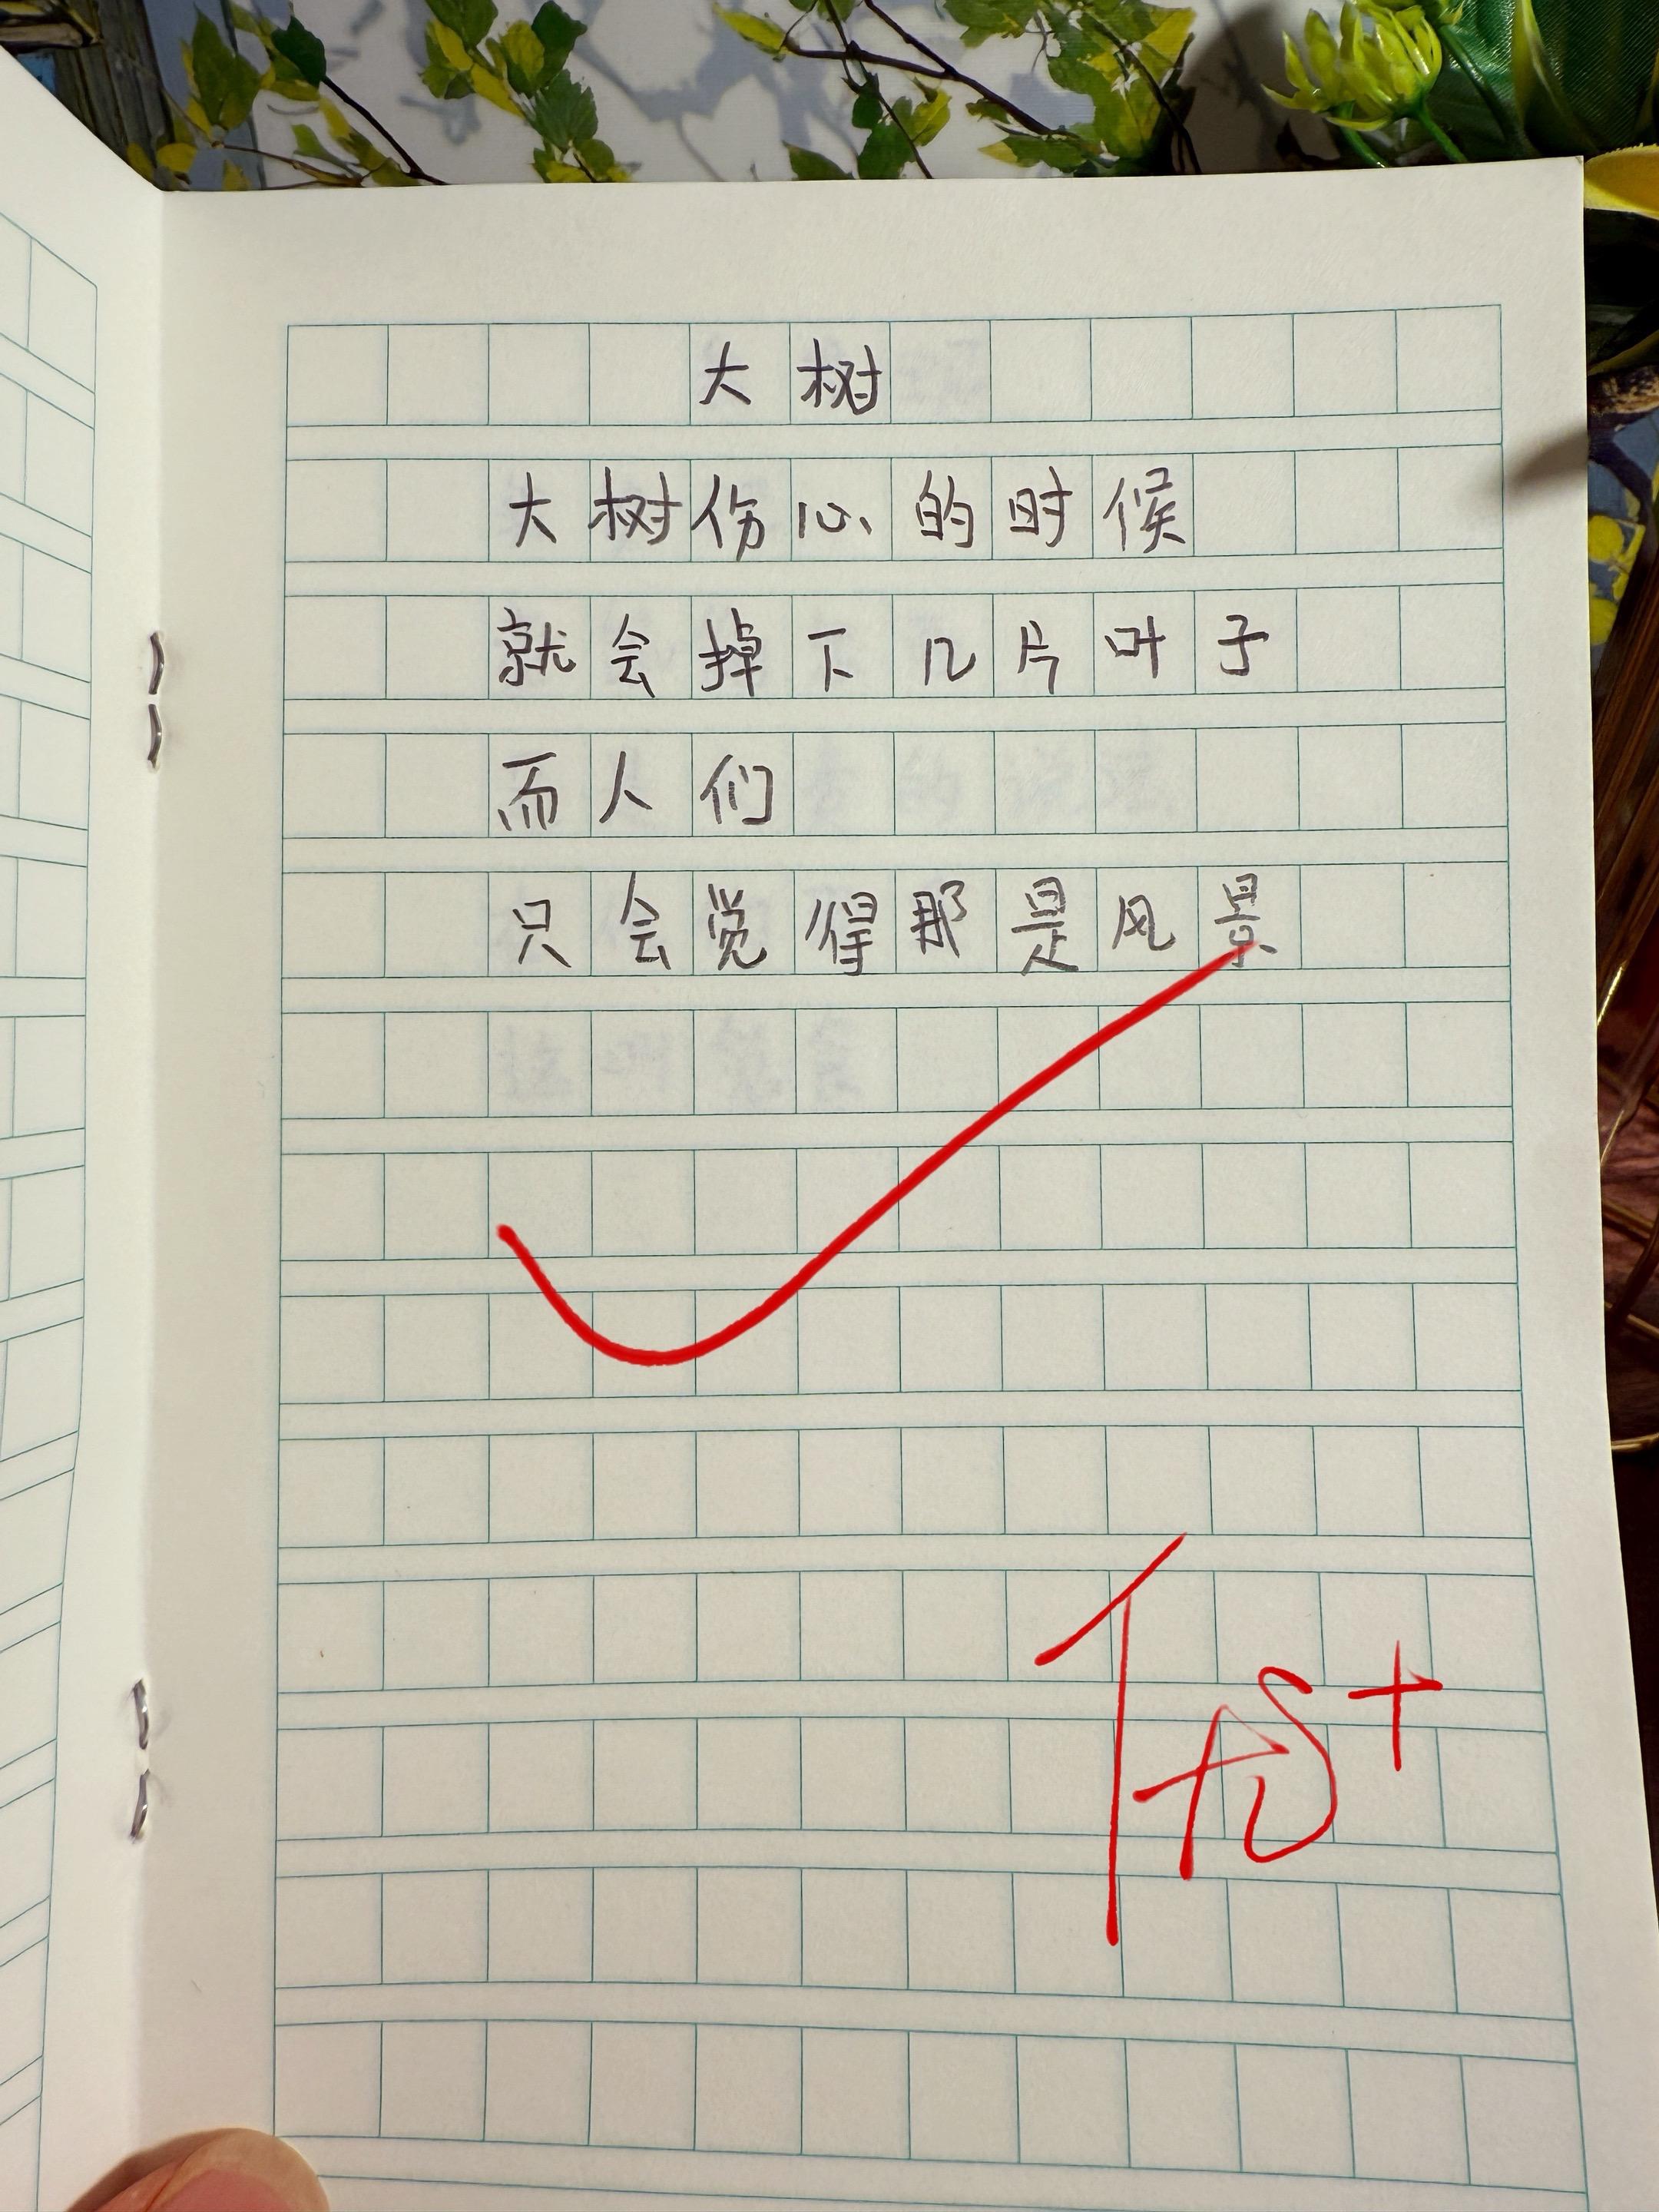 大树
大树伤心的时候
就会掉下几片叶子
而人们
只会觉得那是风景
优+